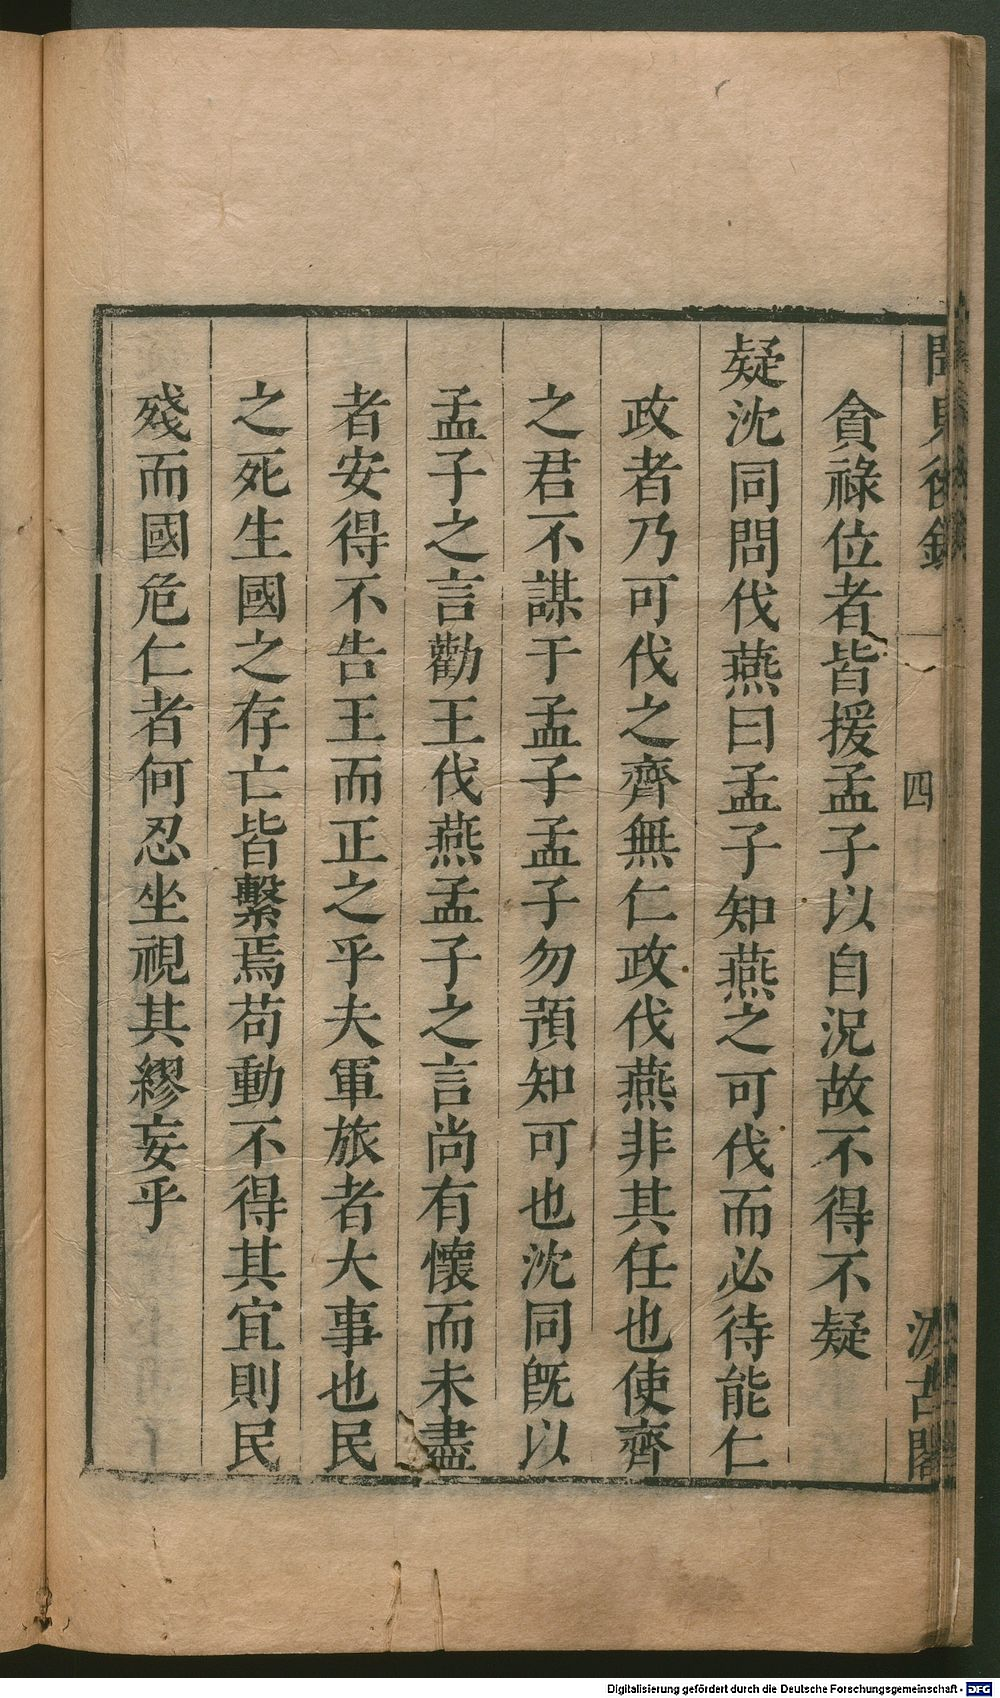 聞見後錄
四
汲古閣
貪祿位者皆援孟子以自況故不得不疑
疑沈同問伐燕曰孟子知燕之可伐而必待能仁
政者乃可伐之齊無仁政伐燕非其任也使齊
之君不謀于孟子孟子勿預知可也沈同旣以
孟子之言勸王伐燕孟子之言尚有懷而未盡
者安得不告王而正之乎夫軍旅者大事也民
之死生國之存亡皆繫焉苟動不得其宜則民
殘而國危仁者何忍坐視其繆妄乎
Digitalisierung gefördert durch die Deutsche Forschungsgemeinschaft - DFG